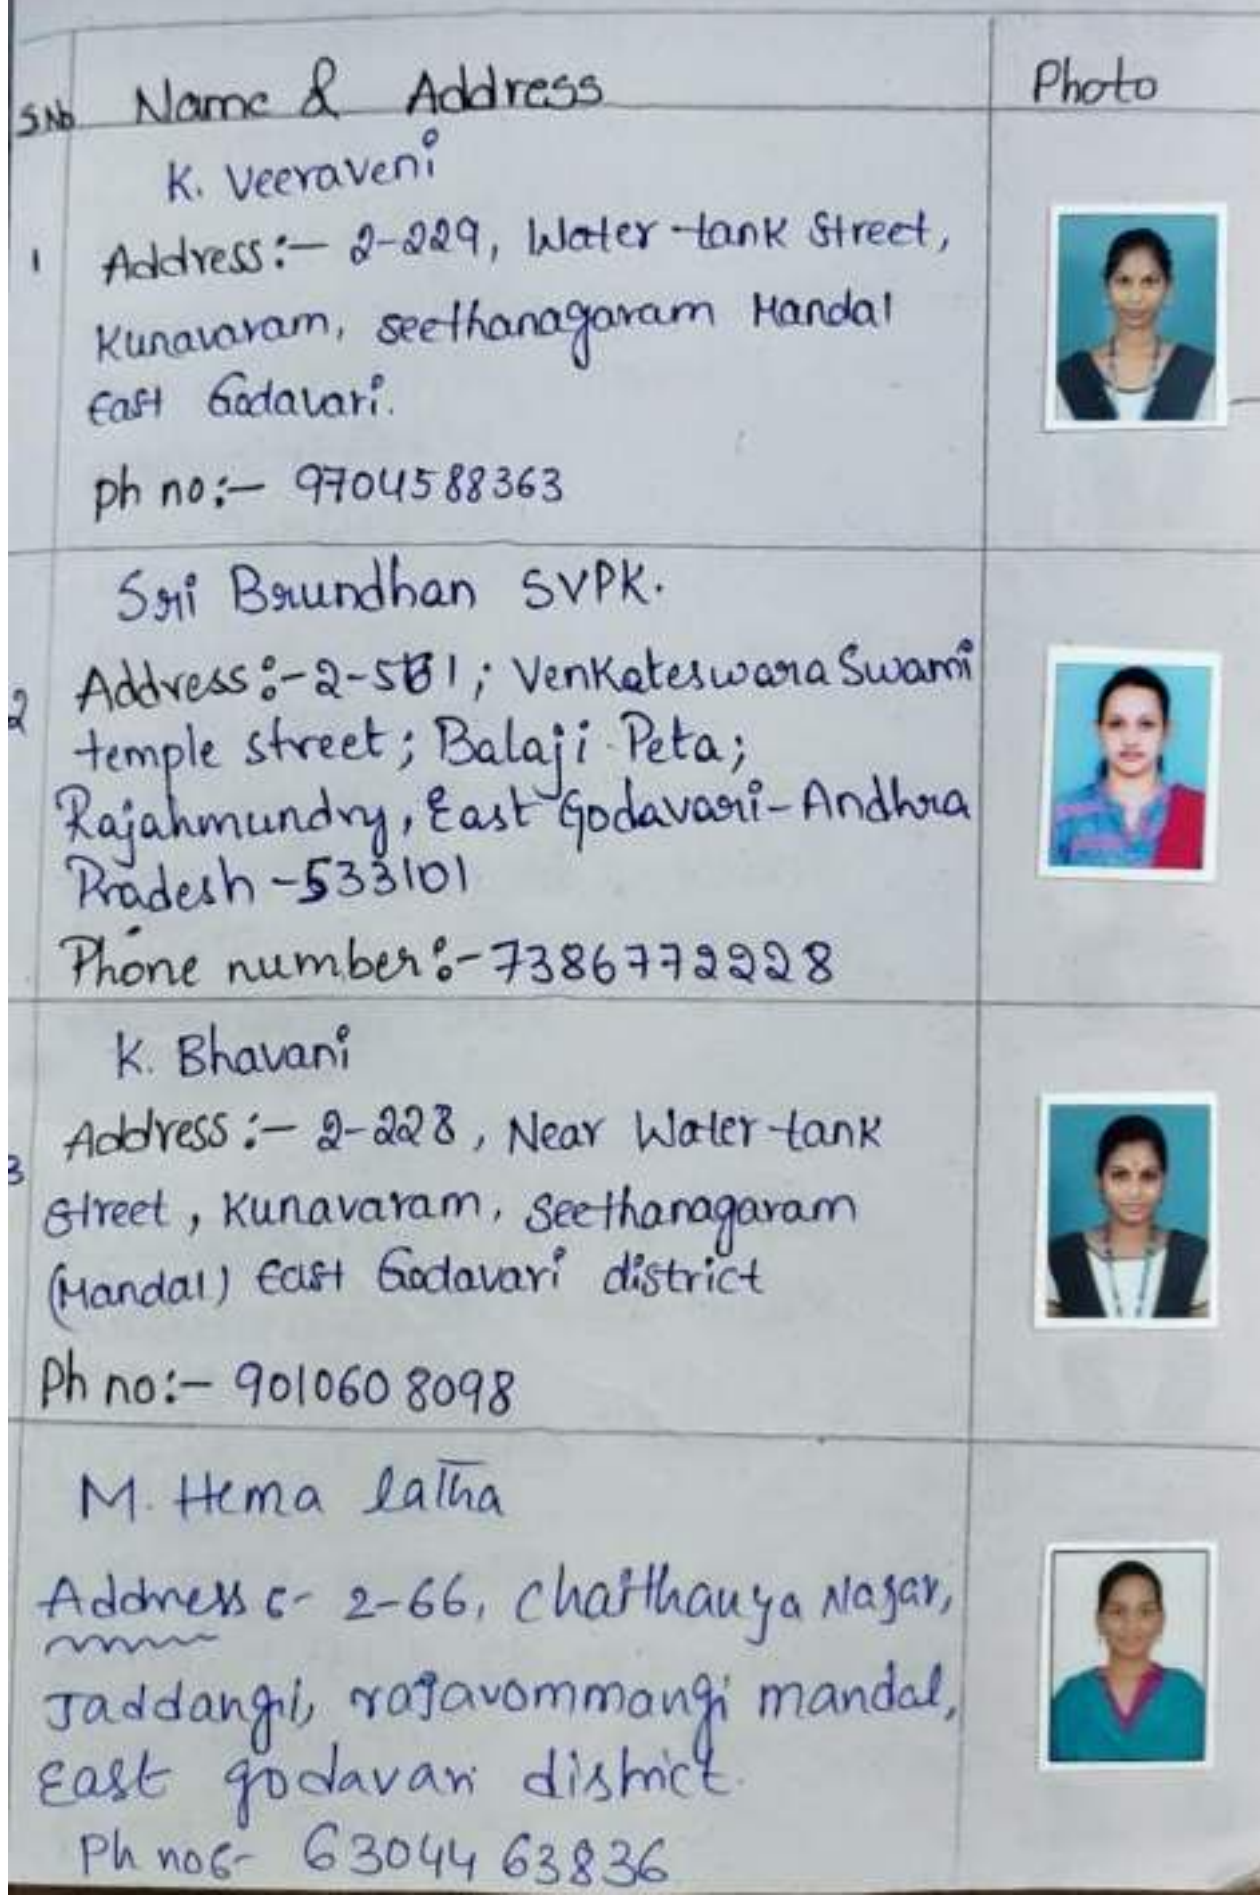 S.No Name & Address Photo
K. Veeraveni
1 Address:- 2-229, Water-tank Street,
Kunavaram, seethanagaram Mandal
East Godavari.
ph no:- 9704588363
Sri Brundhan SVPK.
2 Address:-2-561; Venkateswara Swami
temple street; Balaji Peta;
Rajahmundry, East Godavari-Andhra
Pradesh-533101
Phone number:-7386772228
K. Bhavani
Address:- 2-228, Near Water-tank
3 street, Kunavaram, Seethanagaram
(Mandal) East Godavari district
Ph no:- 9010608098
M. Hema latha
Address:- 2-66, Chaithanya Nagar,
Jaddangi, rajavommangi mandal,
East godavari district.
Ph no:- 6304463836